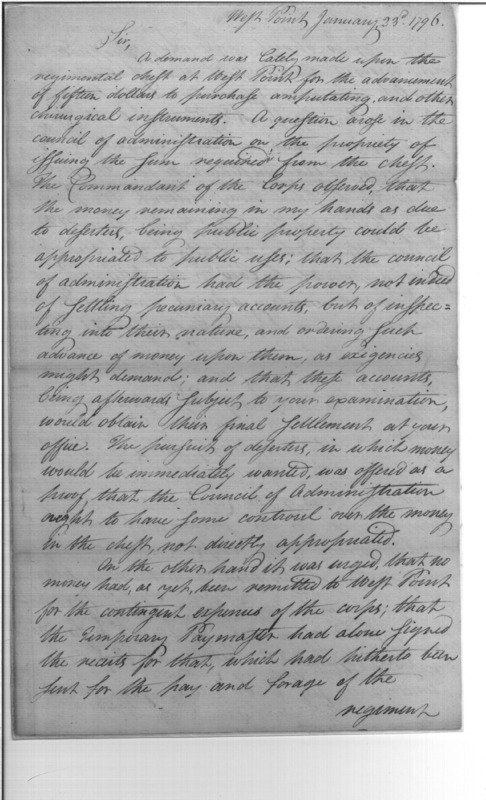 West Point January 23d 1796.
Sir,
A demand was lately made upon the
regimental chest at West Point for the advancement
of fifteen dollars to purchase amputating, and other
chirurgical instruments. A question arose in the
council of administration on the propriety of
issuing the sum required from the chest.
The Commandant of the Corps observed, that
the money remaining in my hands as due
to deserters, being public property could be
appropriated to public uses; that the council
of administration had the power, not indeed
of settling pecuniary accounts, but of inspec=
ting into their nature, and ordering such
advance of money upon them, as exigencies
might demand; and that these accounts,
being afterwards subject to your examination,
would obtain their final settlement at your
office. The pursuit of deserters, in which money
would be immediately wanted, was offered as a
proof, that the Council of Administration
ought to have some controul over the money
in the chest, not directly appropriated.
On the other hand it was urged, that no
money had, as yet, been remitted to West Point
for the contingent expenses of the corps; that
the temporary Paymaster had alone signed
the receits for that, which had hitherto been
sent for the pay and forage of the
regiment